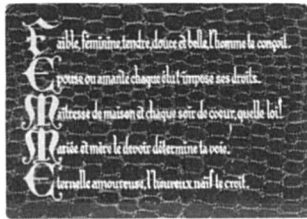 Faible, féminine, tendre, douce et belle, l'homme te conçoit.
Epouse ou amante chaque élu t'impose ses droits.
Maîtresse de maison et chaque soir de coeur, quelle loi!
Mariée et mère le devoir détermine ta voie.
Eternelle amoureuse, l'heureux naïf le croit.